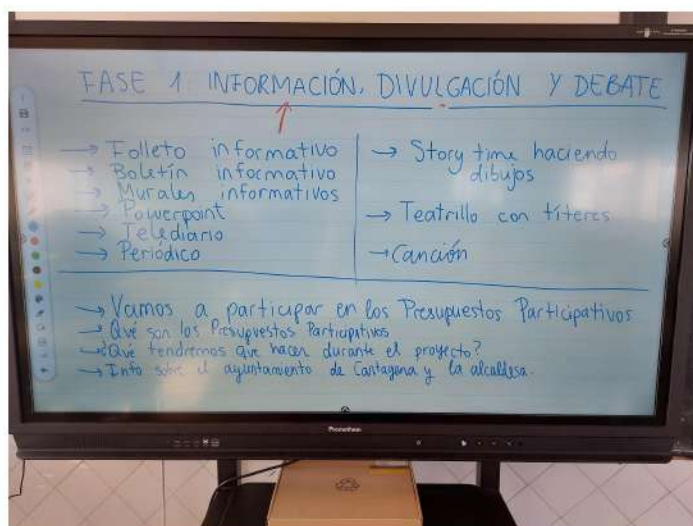 FASE 1 INFORMACIÓN, DIVULGACIÓN Y DEBATE
→ Folleto informativo
→ Boletín informativo
→ Murales informativos
→ Powerpoint
→ Telediario
→ Periódico
→ Story time haciendo
dibujos
→ Teatrillo con títeres
→ Canción
→ Vamos a participar en los Presupuestos Participativos
→ Qué son los Presupuestos Participativos
→ ¿Qué tendremos que hacer durante el proyecto?
→ Info sobre el ayuntamiento de Cartagena y la alcaldesa.
Promethean